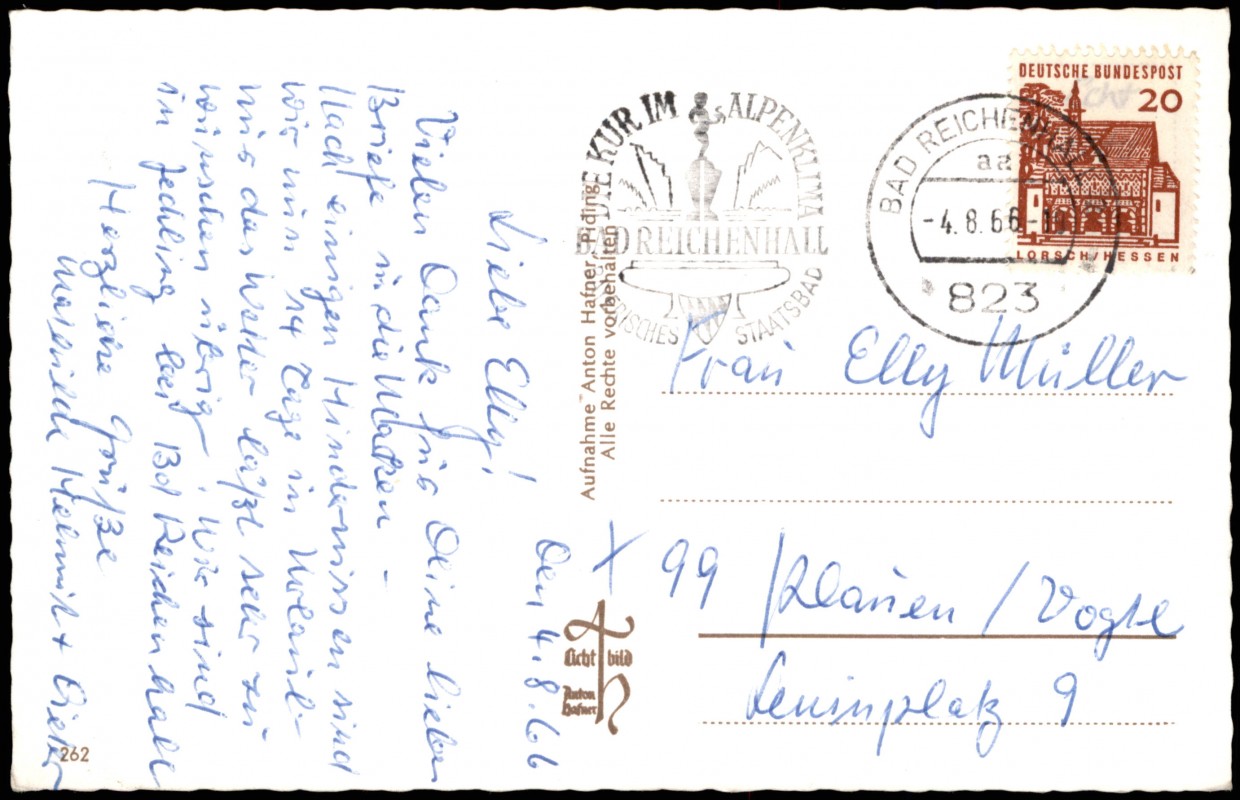 Den 4.8.66
Liebe Elly!
Vielen Dank für Deine lieben
Briefe in die Wacken -
Nach einigen Hindernissen sind
wir nun 14 Tage in Urlaub
nur das Wetter läßt sehr zu
wünschen übrig. Wir sind
in Jechling bei Bd Reichenhall
Herzliche Grüße
Helmut + Dieter
262
Aufnahme Anton Hafner, Piding
Alle Rechte vorbehalten
Licht bild
Anton
Hafner
BADEKUR IM ALPENKLIMA
BAD REICHENHALL
STAATSBAD
BAD REICHENHALL
aa
-4.8.66-10
823
DEUTSCHE BUNDESPOST
20
LORSCH/HESSEN
Frau Elly Müller
X 99 Plauen / Vogtl
Leninplatz 9